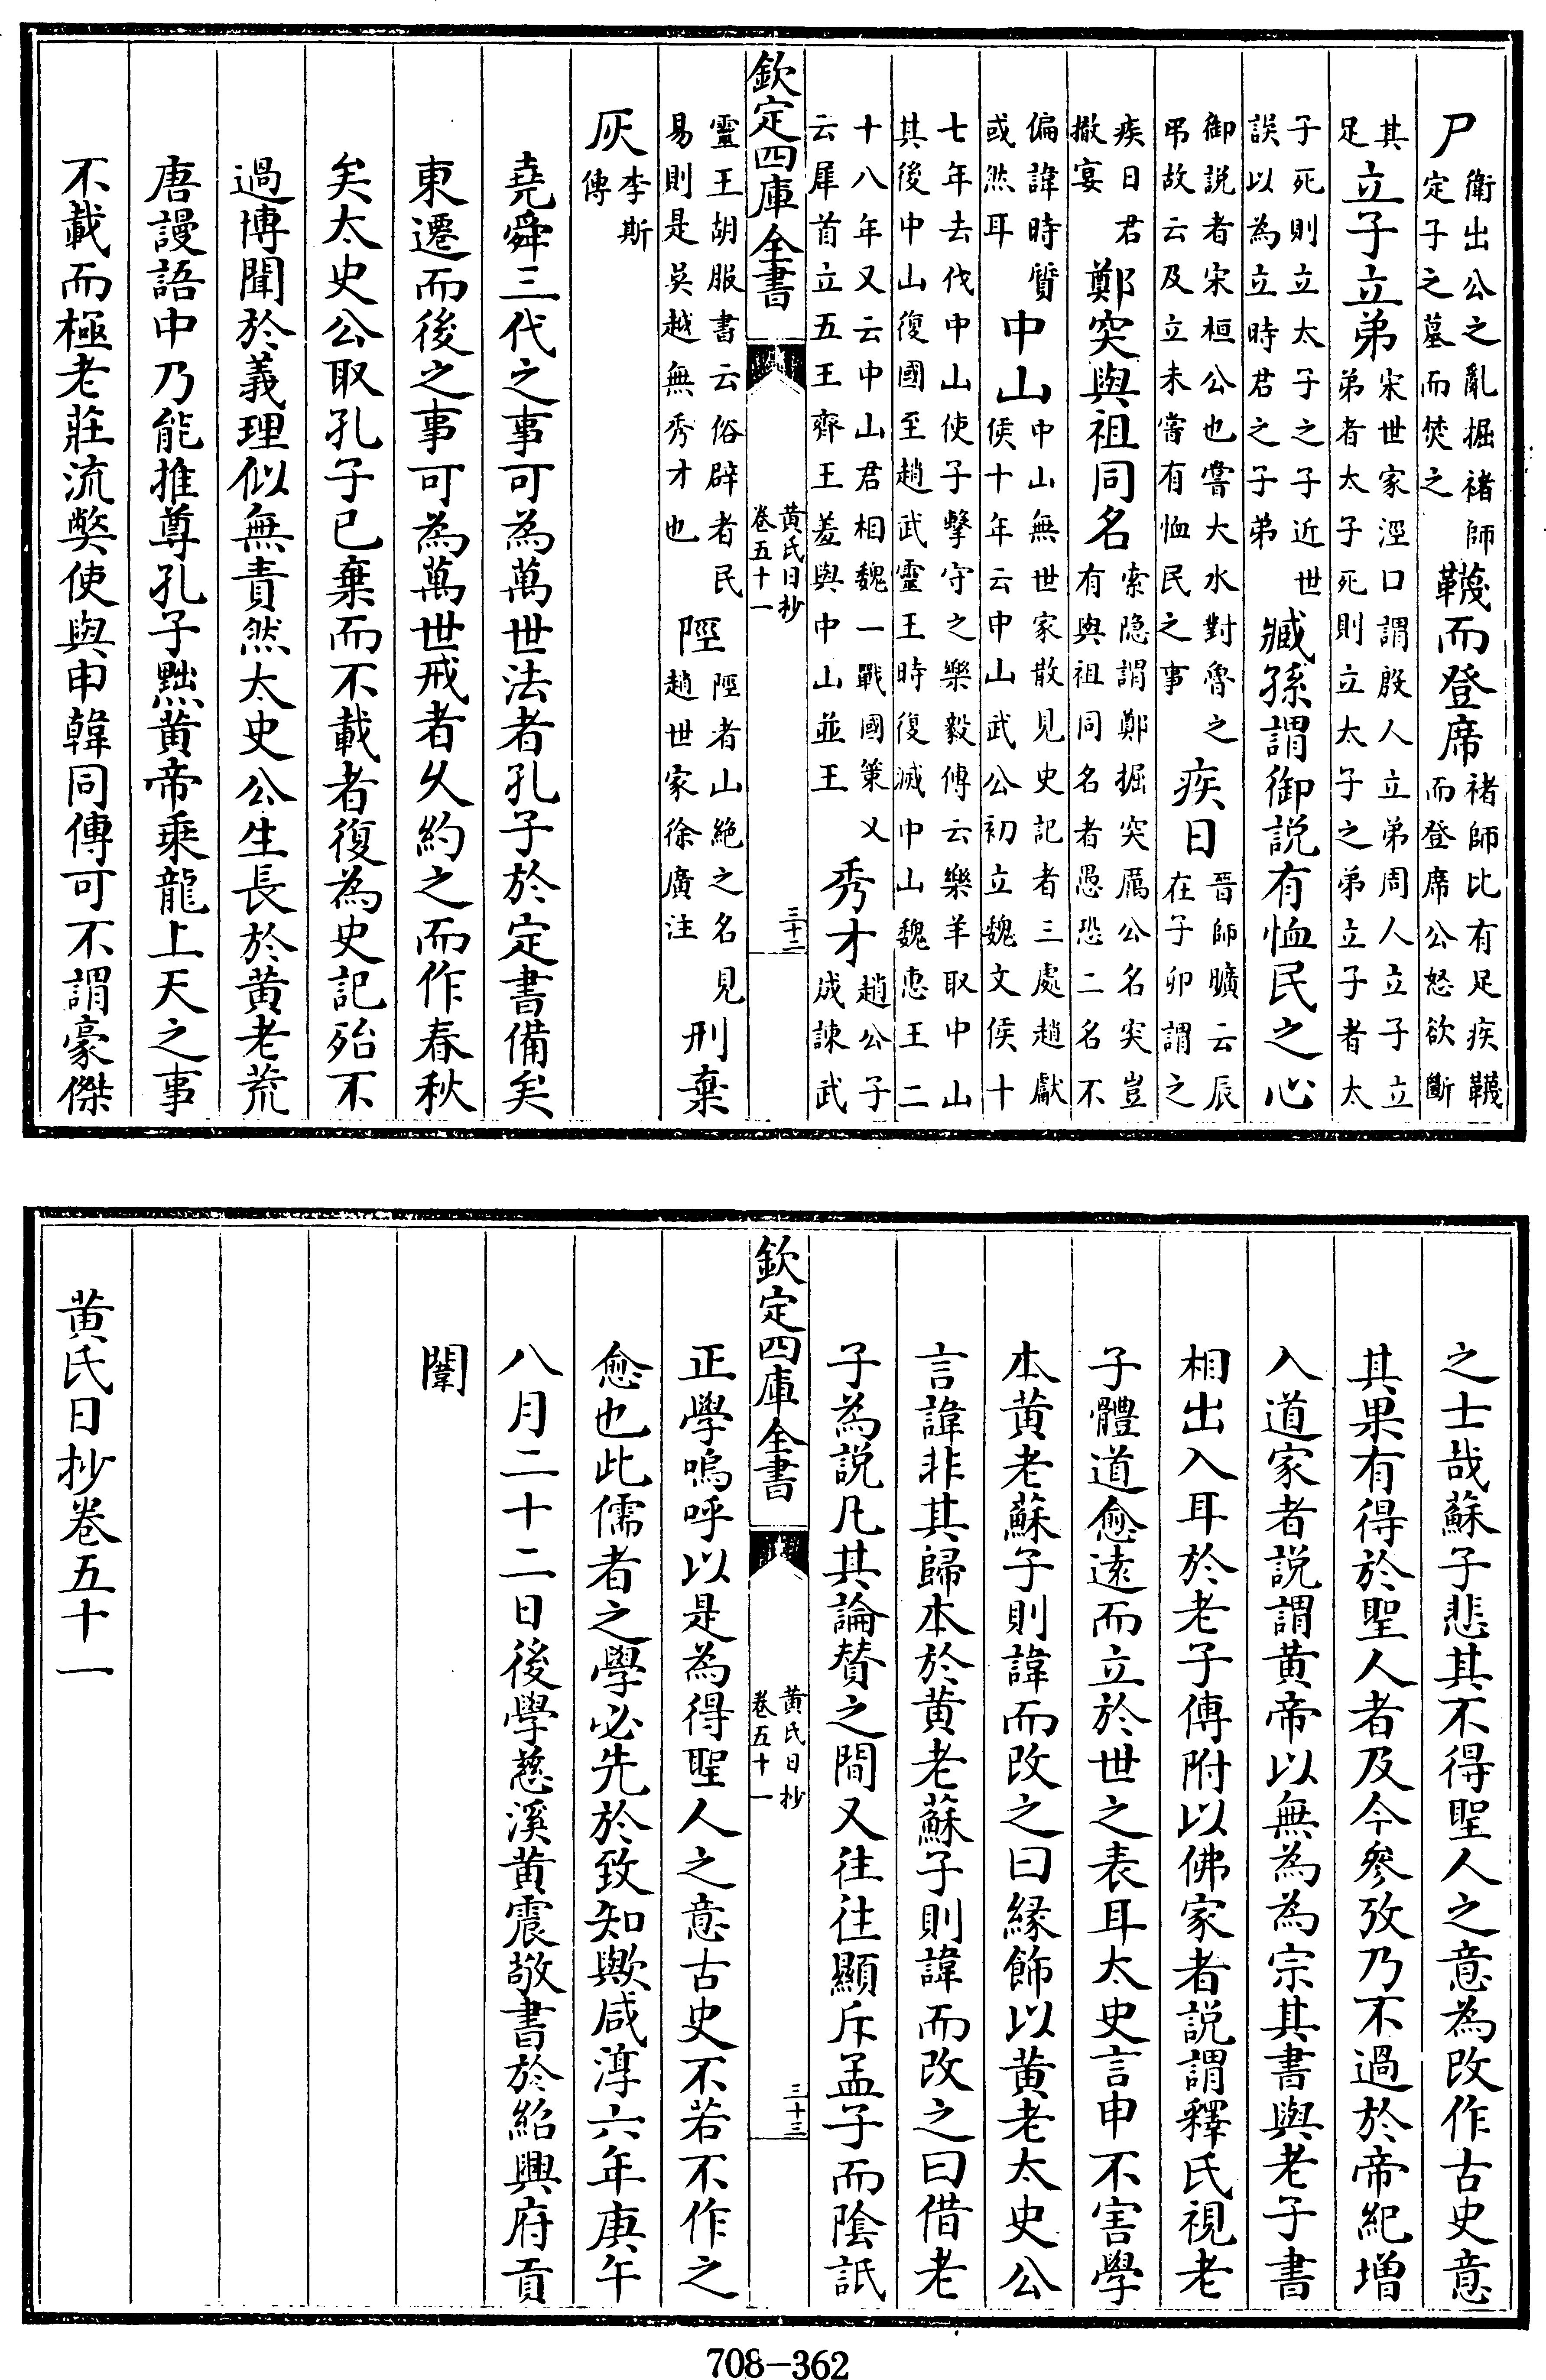 尸衛出公之亂掘褚師定子之墓而焚之韈而登席褚師比有足疾韈而登席公怒欲斷
其足立子立弟宋世家涇口謂殷人立弟周人立子立弟者太子死則立太子之弟立子者太
子死則立太子之子近世誤以為立時君之子弟臧孫謂御説有恤民之心
御説者宋桓公也嘗大水對魯之弔故云及立未嘗有恤民之事疾日晉師曠云辰在子卯謂之
疾日君撤宴鄭突與祖同名索隐謂鄭掘突厲公名突豈有與祖同名者愚恐二名不
偏諱時質或然耳中山中山無世家散見史記者三處趙獻侯十年云中山武公初立魏文侯十
七年去伐中山使子擊守之樂毅傳云樂羊取中山其後中山復國至趙武靈王時復滅中山魏惠王二
十八年又云中山君相魏一戰國策又云犀首立五王齊王羞與中山並王秀才趙公子成諫武
欽定四庫全書
黄氏日抄
卷五十一
三十二
靈王胡服書云俗辟者民易則是吳越無秀才也陘陘者山絶之名見趙世家徐廣注刑棄
灰李斯傳
堯舜三代之事可為萬世法者孔子於定書備矣
東遷而後之事可為萬世戒者乆約之而作春秋
矣太史公取孔子已棄而不載者復為史記殆不
過博聞於義理似無責然太史公生長於黄老荒
唐謾語中乃能推尊孔子黜黄帝乘龍上天之事
不載而極老莊流弊使與申韓同傳可不謂豪傑
之士哉蘇子悲其不得聖人之意為改作古史意
其果有得於聖人者及今參攷乃不過於帝紀增
入道家者説謂黄帝以無為為宗其書與老子書
相出入耳於老子傳附以佛家者説謂釋氏視老
子體道愈遠而立於世之表耳太史言申不害學
本黄老蘇子則諱而改之曰緣飾以黄老太史公
言諱非其歸本於黄老蘇子則諱而改之曰借老
子為説凡其論賛之間又往往顯斥孟子而陰詆
欽定四庫全書
黄氏日抄
卷五十一
三十三
正學嗚呼以是為得聖人之意古史不若不作之
愈也此儒者之學必先於致知歟咸淳六年庚午
八月二十二日後學慈溪黄震敬書於紹興府貢
闈
黄氏日抄卷五十一
708—362